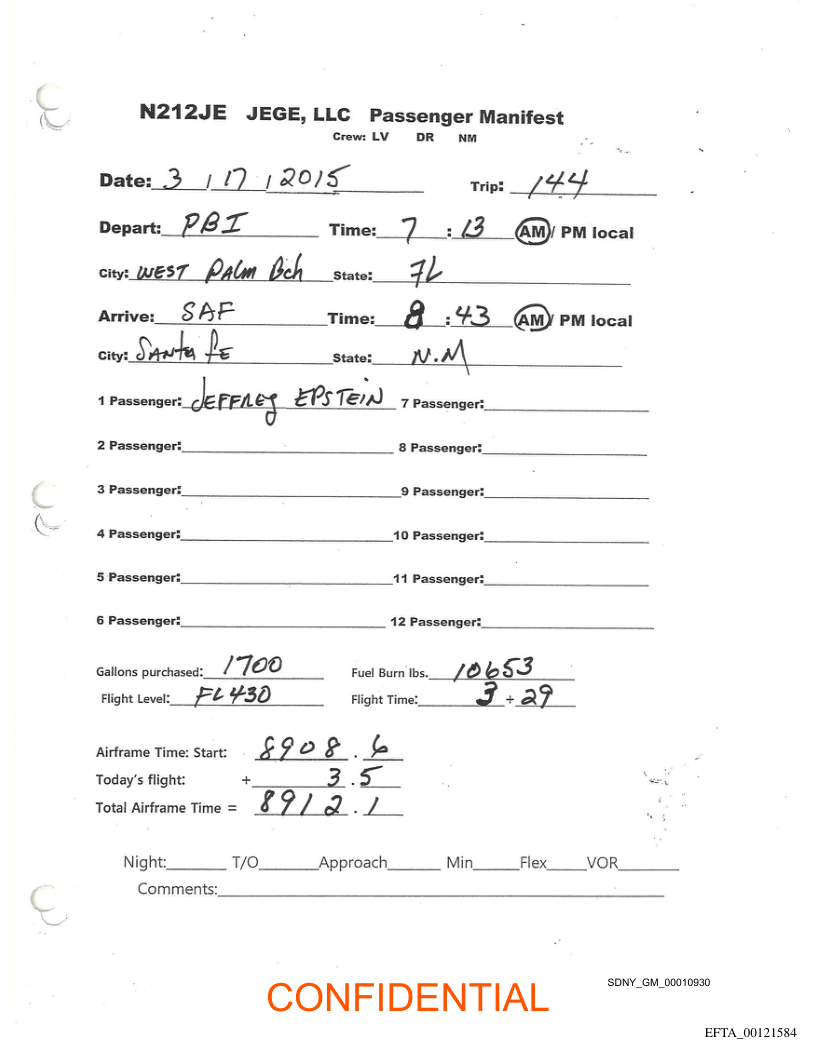 N212JE JEGE, LLC Passenger Manifest
Crew: LV DR NM
Date: 3 / 17 / 2015 Trip: 144
Depart: PBI Time: 7 : 13 AM/ PM local
City: WEST PALM Bch State: FL
Arrive: SAF Time: 8 : 43 AM/ PM local
City: SANTA FE State: N.M
1 Passenger: JEFFREY EPSTEIN 7 Passenger:
2 Passenger: 8 Passenger:
3 Passenger: 9 Passenger:
4 Passenger: 10 Passenger:
5 Passenger: 11 Passenger:
6 Passenger: 12 Passenger:
Gallons purchased: 1700 Fuel Burn lbs. 10653
Flight Level: FL430 Flight Time: 3 + 29
Airframe Time: Start: 8908 . 6
Today's flight: + 3 . 5
Total Airframe Time = 8912 . 1
Night: T/O Approach Min Flex VOR
Comments:
SDNY_GM_00010930
CONFIDENTIAL
EFTA_00121584